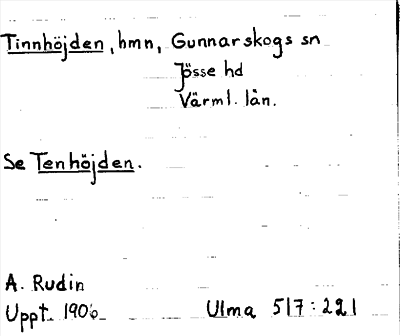 Tinnhöjden, hmn, Gunnarskogs sn
Jösse hd
Värml. län.
Se Tenhöjden.
A. Rudin
Uppt. 1906 Ulma 517:221